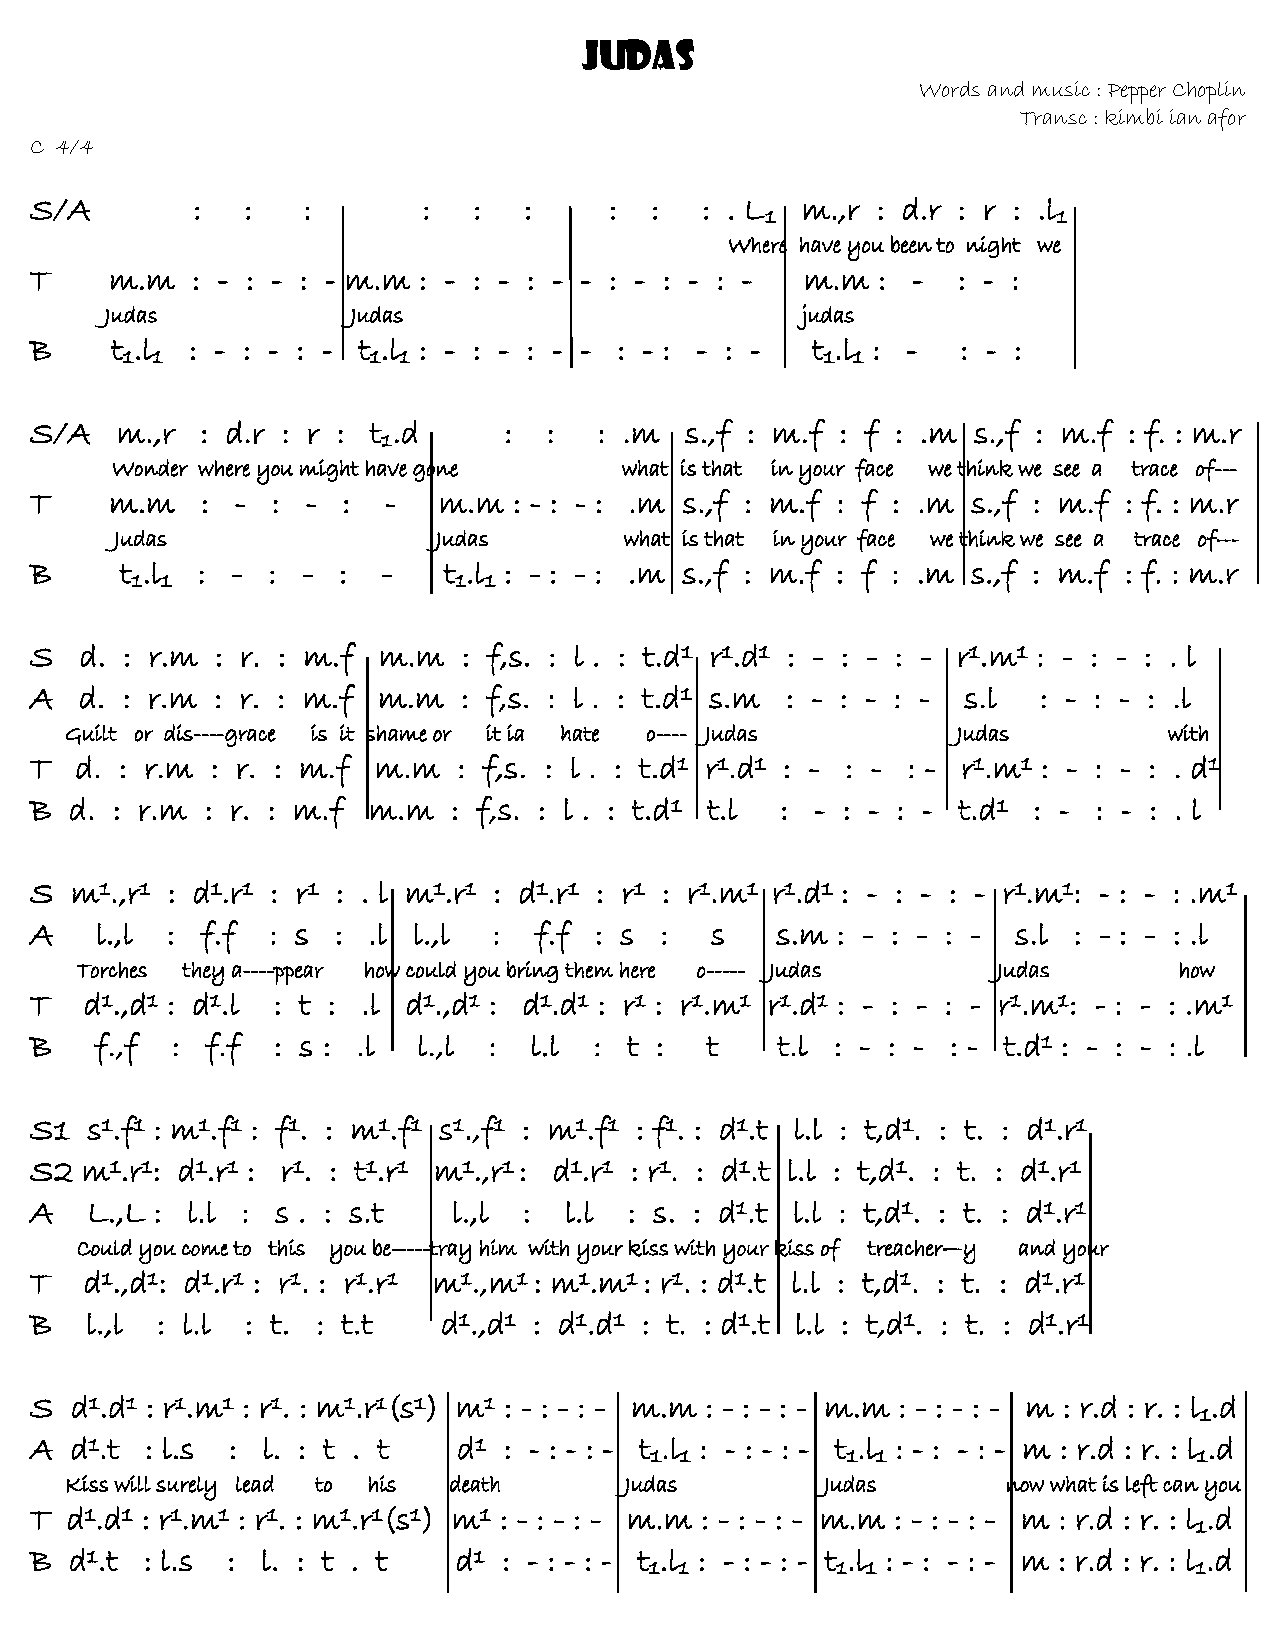 JUDAS
Words and music : Pepper Choplin
Transc : kimbi ian afor
C 4/4
S/A : : : : : : : : : . L₁ m.,r : d.r : r : .l₁
Where have you been to night we
T m.m : - : - : - m.m : - : - : - - : - : - : - m.m : - : - :
Judas Judas judas
B t₁.l₁ : - : - : - t₁.l₁ : - : - : - - : - : - : - t₁.l₁ : - : - :
S/A m.,r : d.r : r : t₁.d : : : .m s.,f : m.f : f : .m s.,f : m.f : f. : m.r
Wonder where you might have gone what is that in your face we think we see a trace of---
T m.m : - : - : - m.m : - : - : .m s.,f : m.f : f : .m s.,f : m.f : f. : m.r
Judas Judas what is that in your face we think we see a trace of---
B t₁.l₁ : - : - : - t₁.l₁ : - : - : .m s.,f : m.f : f : .m s.,f : m.f : f. : m.r
S d. : r.m : r. : m.f m.m : f,s. : l . : t.d¹ r¹.d¹ : - : - : - r¹.m¹ : - : - : . l
A d. : r.m : r. : m.f m.m : f,s. : l . : t.d¹ s.m : - : - : - s.l : - : - : .l
Guilt or dis----grace is it shame or it ia hate o---- Judas Judas with
T d. : r.m : r. : m.f m.m : f,s. : l . : t.d¹ r¹.d¹ : - : - : - r¹.m¹ : - : - : . d¹
B d. : r.m : r. : m.f m.m : f,s. : l . : t.d¹ t.l : - : - : - t.d¹ : - : - : . l
S m¹.,r¹ : d¹.r¹ : r¹ : . l m¹.r¹ : d¹.r¹ : r¹ : r¹.m¹ r¹.d¹ : - : - : - r¹.m¹: - : - : .m¹
A l.,l : f.f : s : .l l.,l : f.f : s : s s.m : - : - : - s.l : - : - : .l
Torches they a----ppear how could you bring them here o----- Judas Judas how
T d¹.,d¹ : d¹.l : t : .l d¹.,d¹ : d¹.d¹ : r¹ : r¹.m¹ r¹.d¹ : - : - : - r¹.m¹: - : - : .m¹
B f.,f : f.f : s : .l l.,l : l.l : t : t t.l : - : - : - t.d¹ : - : - : .l
S1 s¹.f¹ : m¹.f¹ : f¹. : m¹.f¹ s¹.,f¹ : m¹.f¹ : f¹. : d¹.t l.l : t,d¹. : t. : d¹.r¹
S2 m¹.r¹: d¹.r¹ : r¹. : t¹.r¹ m¹.,r¹ : d¹.r¹ : r¹. : d¹.t l.l : t,d¹. : t. : d¹.r¹
A L.,L : l.l : s . : s.t l.,l : l.l : s. : d¹.t l.l : t,d¹. : t. : d¹.r¹
Could you come to this you be-----tray him with your kiss with your kiss of treacher—y and your
T d¹.,d¹: d¹.r¹ : r¹. : r¹.r¹ m¹.,m¹ : m¹.m¹ : r¹. : d¹.t l.l : t,d¹. : t. : d¹.r¹
B l.,l : l.l : t. : t.t d¹.,d¹ : d¹.d¹ : t. : d¹.t l.l : t,d¹. : t. : d¹.r¹
S d¹.d¹ : r¹.m¹ : r¹. : m¹.r¹(s¹) m¹ : - : - : - m.m : - : - : - m.m : - : - : - m : r.d : r. : l₁.d
A d¹.t : l.s : l. : t . t d¹ : - : - : - t₁.l₁ : - : - : - t₁.l₁ : - : - : - m : r.d : r. : l₁.d
Kiss will surely lead to his death Judas Judas now what is left can you
T d¹.d¹ : r¹.m¹ : r¹. : m¹.r¹(s¹) m¹ : - : - : - m.m : - : - : - m.m : - : - : - m : r.d : r. : l₁.d
B d¹.t : l.s : l. : t . t d¹ : - : - : - t₁.l₁ : - : - : - t₁.l₁ : - : - : - m : r.d : r. : l₁.d